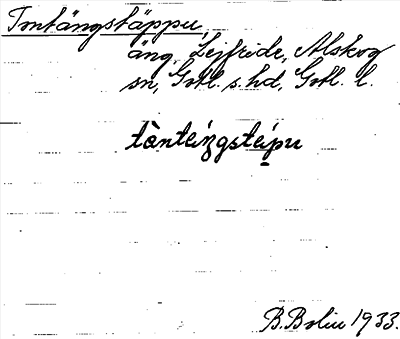 Tomtängstäppu,
äng, Lejfride, Alskog
sn, Gotl. s. hd, Gotl. l.
tàntængstæpu
B. Bolin 1933.